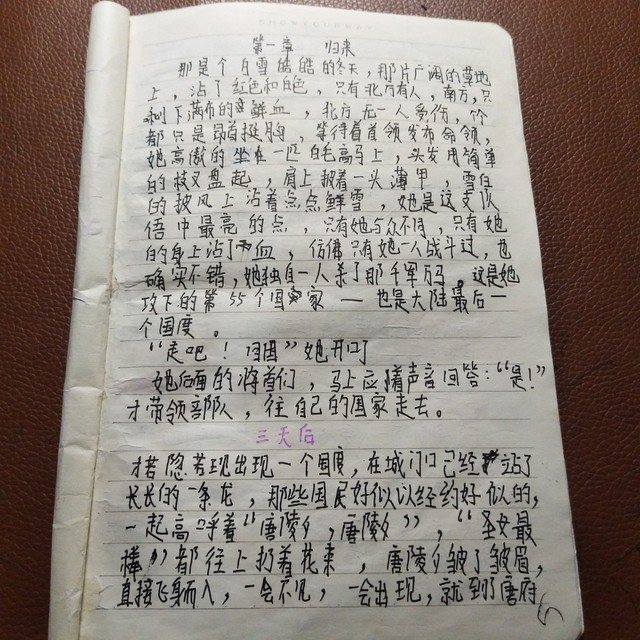 第一章 归来
那是个白雪皑皑的冬天，那片广阔的草地
上，沾了红色和白色，只有北方有人，南方，只
剩下满布的鲜血，北方无一人受伤，个
都只是昂首挺胸，等待着首领发布命领，
她高傲的坐在一匹白毛高马上，头发用简单
的枝叉盘起，肩上披着一头薄甲，雪白
的披风上沾着点点鲜雪，她是这支队
伍中最亮的点，只有她与众不同，只有她
的身上沾了血，仿佛只有她一人战斗过，也
确实不错，她独自一人杀了那千军万马，这是她
攻下的第55个国家——也是大陆最后一
个国度。
“走吧！回国”她开口了
她后面的将首们，马上应随着声音回答：“是！”
才带领部队，往自己的国家走去。
三天后
才若隐若现出现一个国度，在城门口已经站了
长长的一条龙，那些国民好似以经约好似的，
一起高呼着“唐陵夕，唐陵夕”，“圣女最
棒”都往上扔着花来，唐陵夕皱了皱眉，
直接飞身而入，一会不见，一会出现，就到了唐府